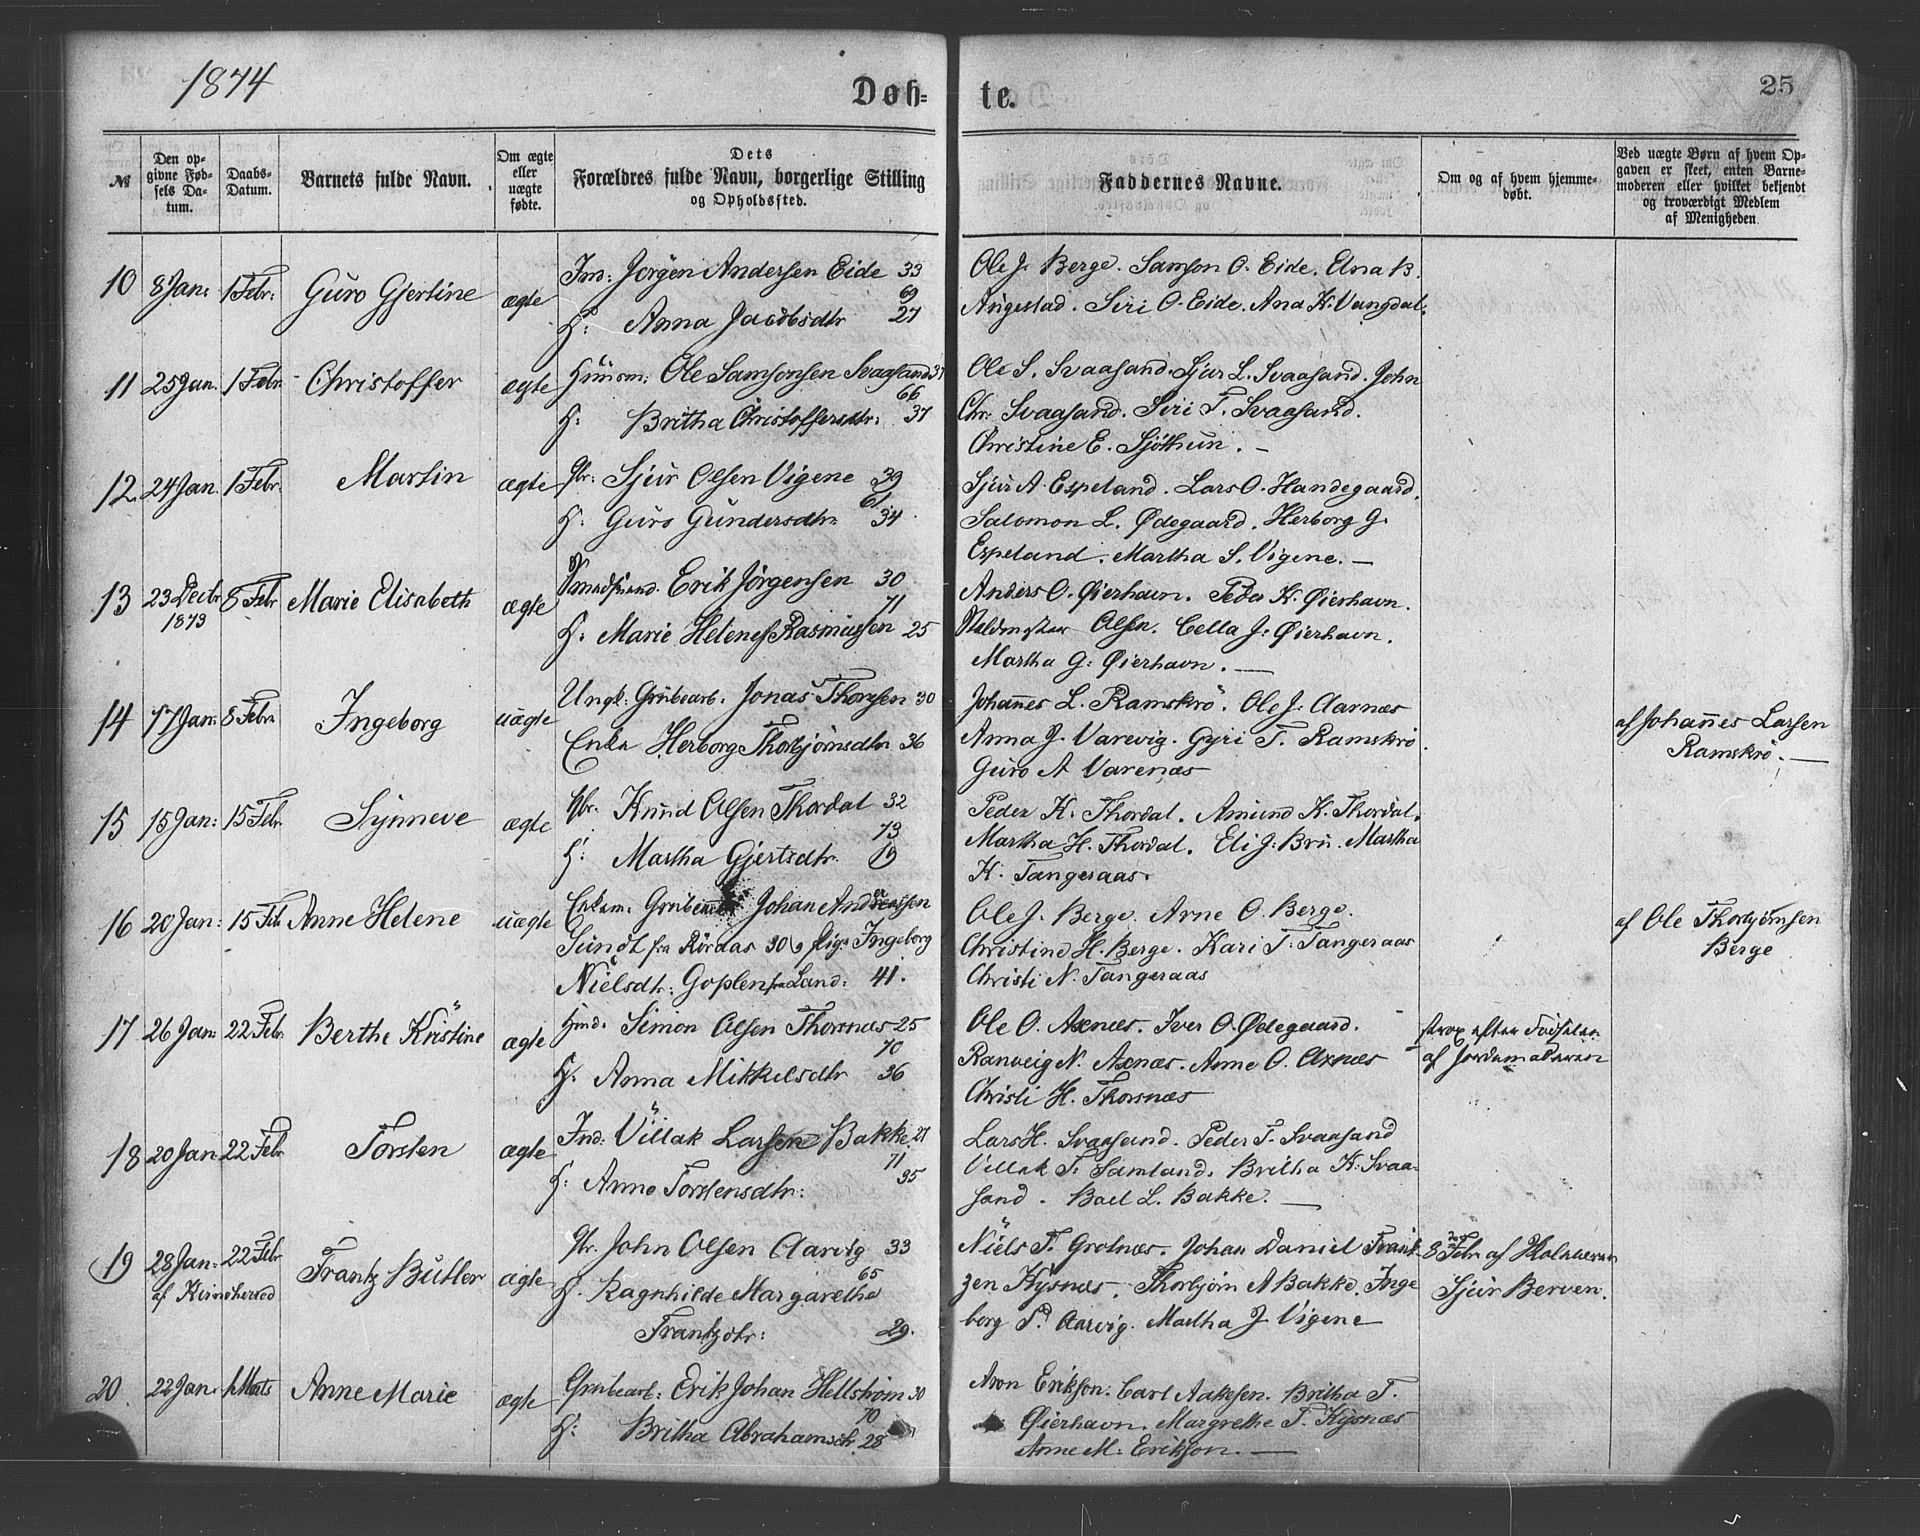 1874
Døb=
te.
25
№
Den op-
givne Fød-
sels Da-
tum.
Daabs-
Datum.
Barnets fulde Navn.
Om ægte
eller
uægte
fødte.
Dets
Forældres fulde Navn, borgerlige Stilling
og Opholdssted.
Faddernes Navne.
Om og af hvem hjemme-
døbt.
Ved uægte Børn af hvem Op-
gaven er skeet, enten Barne-
moderen eller hvilket bekjendt
og troværdigt Medlem
af Menigheden.
10 8 Jan: 1 Febr: Guro Gjertine ægte
Inds: Jörgen Andersen Eide 33
69
H: Anna Jacobsdtr 27
Ole J. Berge. Samson O. Eide. Elna B.
Angestad. Siri O. Eide. Ana K. Vangdal.
11 25 Jan. 1 Febr Christoffer ægte
Huusm: Ole Samsonsen Svaasand 37
66
H: Britha Christoffersdtr: 37
Ole S. Svaasand. Sjur L. Svaasand. John
Chr. Svaasand. Siri T. Svaasand.
Christine E. Sjötthun. —
12. 24 Jan. 1 Febr. Martin ægte
Gbr: Sjur Olsen Vigene 39
61
H: Guro Gundersdtr. 34
Sjur A. Espeland. Lars O. Handegaard.
Salomon L. Ødegaard. Herborg G.
Espeland. Martha S. Vigene. —
13 23 Decbr 8 Febr Marie Elisabeth ægte
1873
Erik Jörgensen 30
71
H: Marie Helene Rasmussen 25
Anders O. Øierhavn. Peder K. Øierhavn.
Olsen. Cella J: Øierhavn.
Martha G: Øierhavn. —
14 17 Jan: 8 Febr Ingeborg uægte
Ungk: Grubearb. Jonas Thorsen 30
Enke Herborg Thorbjörnsdtr 36
Johannes L. Ramskrö. Ole J. Aarnæs
Anna J. Varevig. Gyri T. Ramskrö.
Guro A Varenæs
af Johannes Larsen
Ramskrö. —
15 15 Jan: 15 Febr. Synneve ægte
Gbr. Knud Olsen Thordal 32
73
H: Martha Gjertsdtr. 19
Peder K. Thordal. Amund K. Thordal.
Martha H. Thordal. Eli J. Bru. Martha
K. Tangeraas.
16 20 Jan: 15 Feb Anne Helene uægte
Enkem. Johan Anderssen
Sundt fra Röraas 30 og Pige Ingeborg
Nielsdtr: Goplen fra Land: 41.
Ole J. Berge. Arne O. Berge.
Christine H. Berge. Kari T. Tangeraas
Christi N. Tangeraas
af Ole Thorbjörnsen
Berge
17 26 Jan: 22 Febr. Berthe Kristine ægte
Hmd. Simon Olsen Thorsnæs 25
70
H. Anna Mikkelsdtr 36
Ole O. Axnæs. Iver O. Ødegaard.
Ranveig N. Axnæs. Anne O. Axnæs
Christi H. Thorsnæs
strax efter Fødselen
af Jordemoderen
18 20 Jan 22 Febr Torsten ægte
Ind: Villak Larsen Bakke 27
71
H: Anne Torstensdtr: 35
Lars H. Svaasand. Peder T. Svaasand
Villak T. Samland. Britha K. Svaa-
sand. Baet L. Bakke. —
19 28 Jan: 22 Febr Frantz Butler ægte
af Kinsherred
Gbr. John Olsen Aarvig 33
65
H. Ragnhilde Margarethe
Frantzdtr: 29.
Niels T. Grotnæs. Johan Daniel Frant-
zen Kysnæs. Thorbjörn A Bakke. Inge
borg P. Aarvig. Martha J Vigene
8 Febr. af
Sjur Berven.
20. 22 Jan: 1 Marts Anne Marie ægte
Grubearb: Erik Johan Hellström 30
70
H: Britha Abrahamsdtr. 28
Aron Erikson. Carl Aakesen. Britha T.
Øierhavn. Margrethe T. Kysnæs
Anne M. Erikson. —